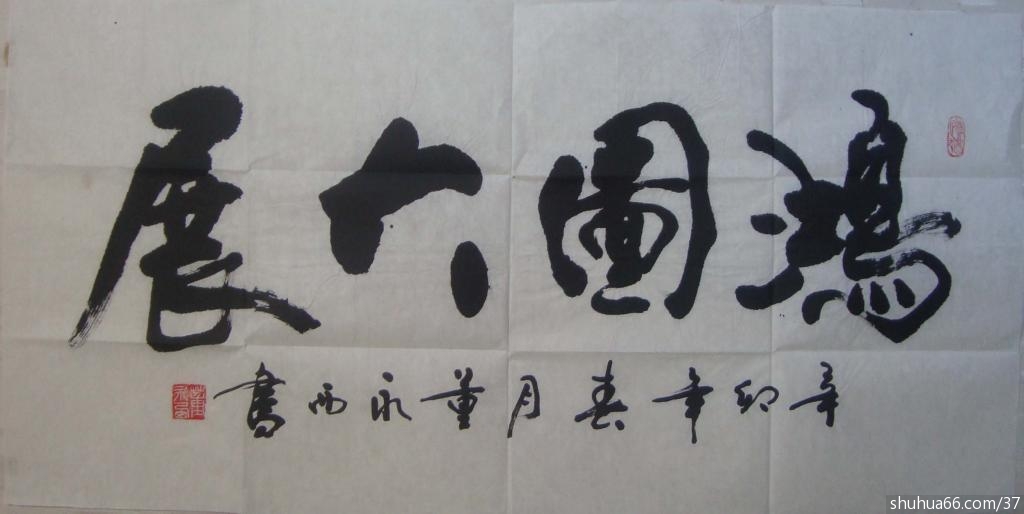 鴻圖大展
辛卯年春月董永西書
shuhua66.com/37